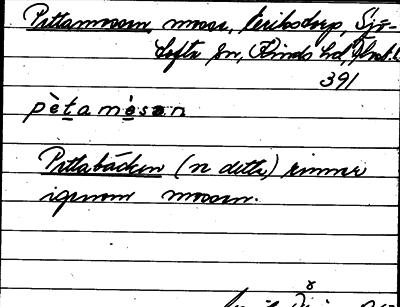 Pittamossen, mosse, Eriksdorp, Sju-
tofta sn, Kinds hd,
391
pètamòsan
Pittabäcken (n detta) rinner
igenom mossen.